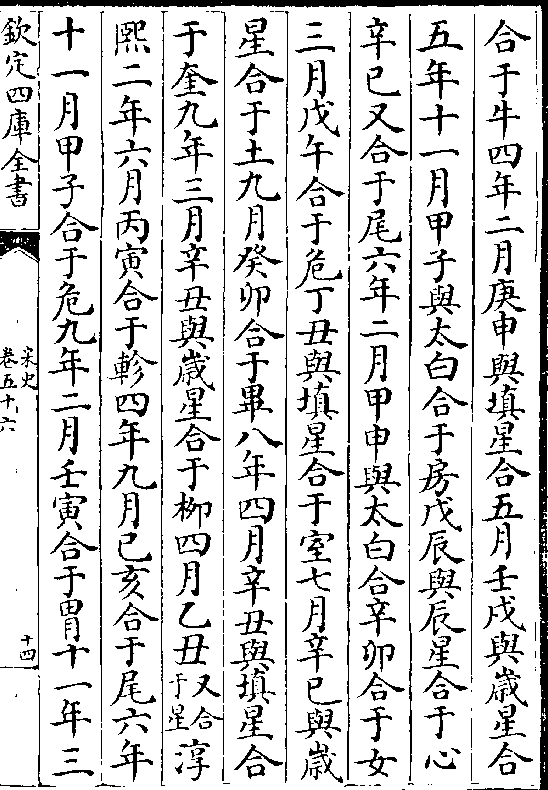 合于牛四年二月庚申與填星合五月壬戌與嵗星合
五年十一月甲子與太白合于房戊辰與辰星合于心
辛已又合于尾六年二月甲申與太白合辛卯合于女
三月戊午合于危丁丑與填星合于室七月辛已與嵗
星合于土九月癸卯合于畢八年四月辛丑與填星合
于奎九年三月辛丑與嵗星合于柳四月乙丑又合于星淳
熙二年六月丙寅合于軫四年九月己亥合于尾六年
十一月甲子合于危九年二月壬寅合于胃十一年三
欽定四庫全書
宋史
卷五十六
十四